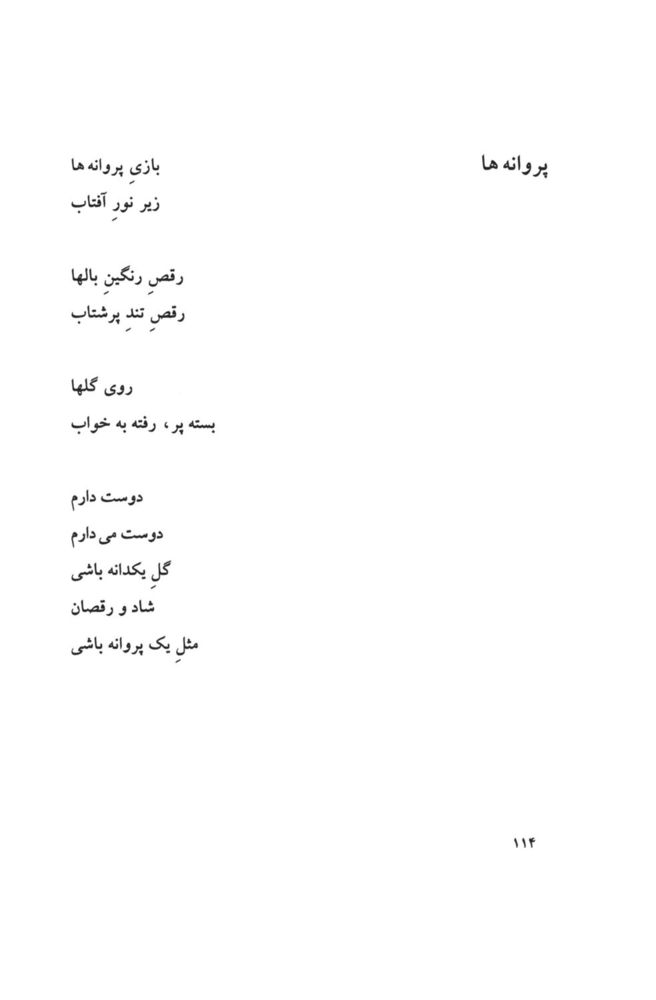 پروانه ها
بازیِ پروانه ها
زیر نورِ آفتاب
رقصِ رنگینِ بالها
رقصِ تندِ پرشتاب
روی گلها
بسته پر، رفته به خواب
دوست دارم
دوست می دارم
گلِ یکدانه باشی
شاد و رقصان
مثلِ یک پروانه باشی
۱۱۴